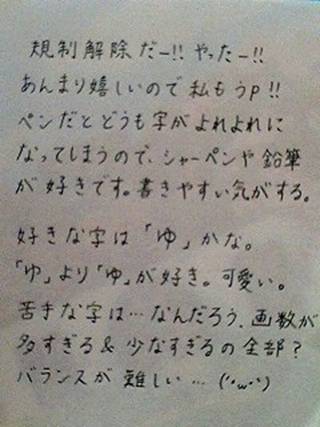 規制解除だー!! やったー!!
あんまり嬉しいので私もうp!!
ペンだとどうも字がよれよれに
なってしまうので、シャーペンや鉛筆
が好きです。書きやすい気がする。
好きな字は「ゆ」かな。
「ゆ」より「ゆ」が好き。可愛い。
苦手な字は…なんだろう、画数が
多すぎる&少なすぎるの全部?
バランスが難しい…(´・ω・`)